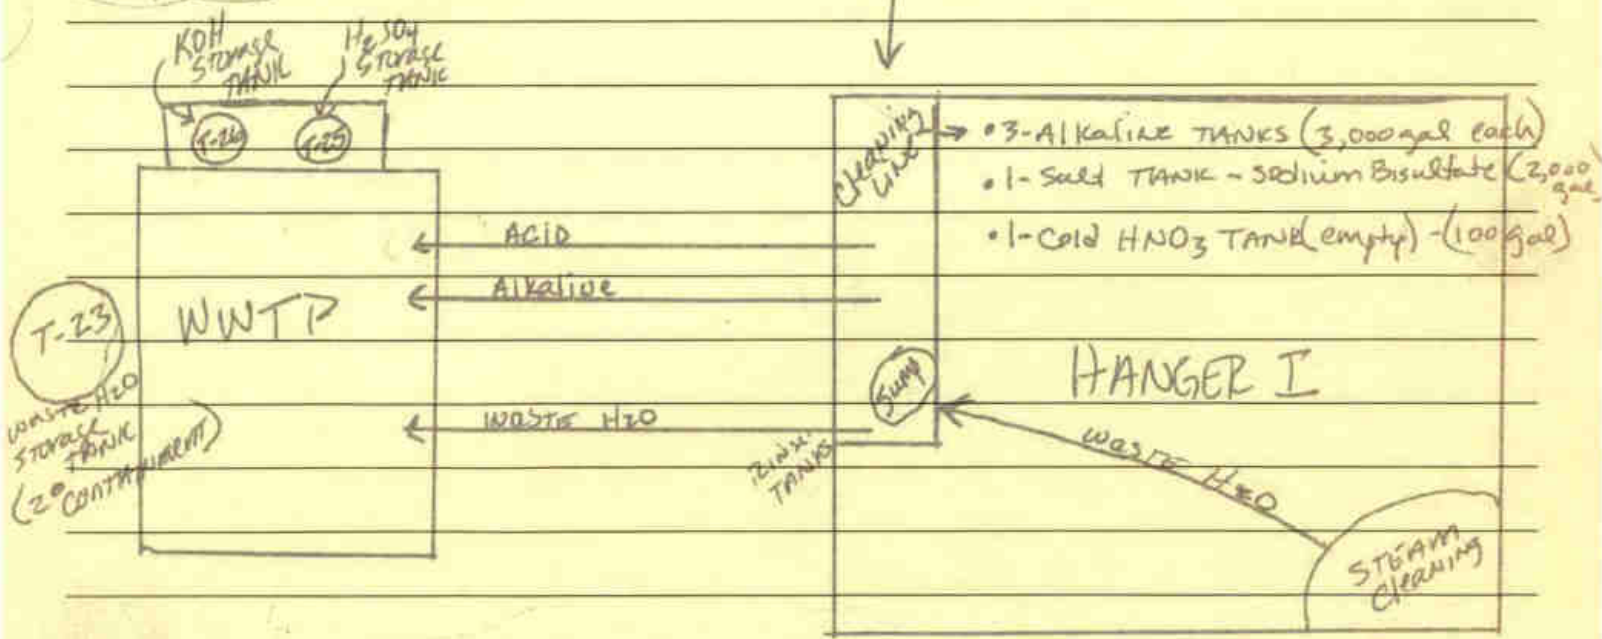 KOH
STORAGE
TANK
H2SO4
STORAGE
TANK
T-26
T-25
T-23
WASTE H2O
STORAGE
TANK
(2° CONTAINMENT)
WWTP
ACID
Alkaline
WASTE H2O
Cleaning
LINE
• 3-Alkaline TANKS (3,000 gal each)
• 1-Salt TANK - Sodium Bisulfate (2,000 gal)
• 1-Cold HNO3 TANK (empty) - (100 gal)
Sump
RINSE
TANKS
HANGER I
WASTE H2O
STEAM
Cleaning